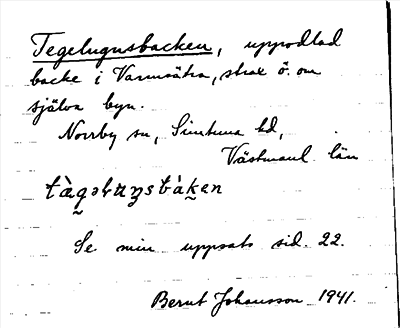 Tegelugnsbacken, uppodlad
backe i Varmsätra, strax ö. om
själva byn.
Norrby sn, Simtuna hd,
Västmanl. län
Se min uppsats sid. 22.
Bernt Johansson 1941.